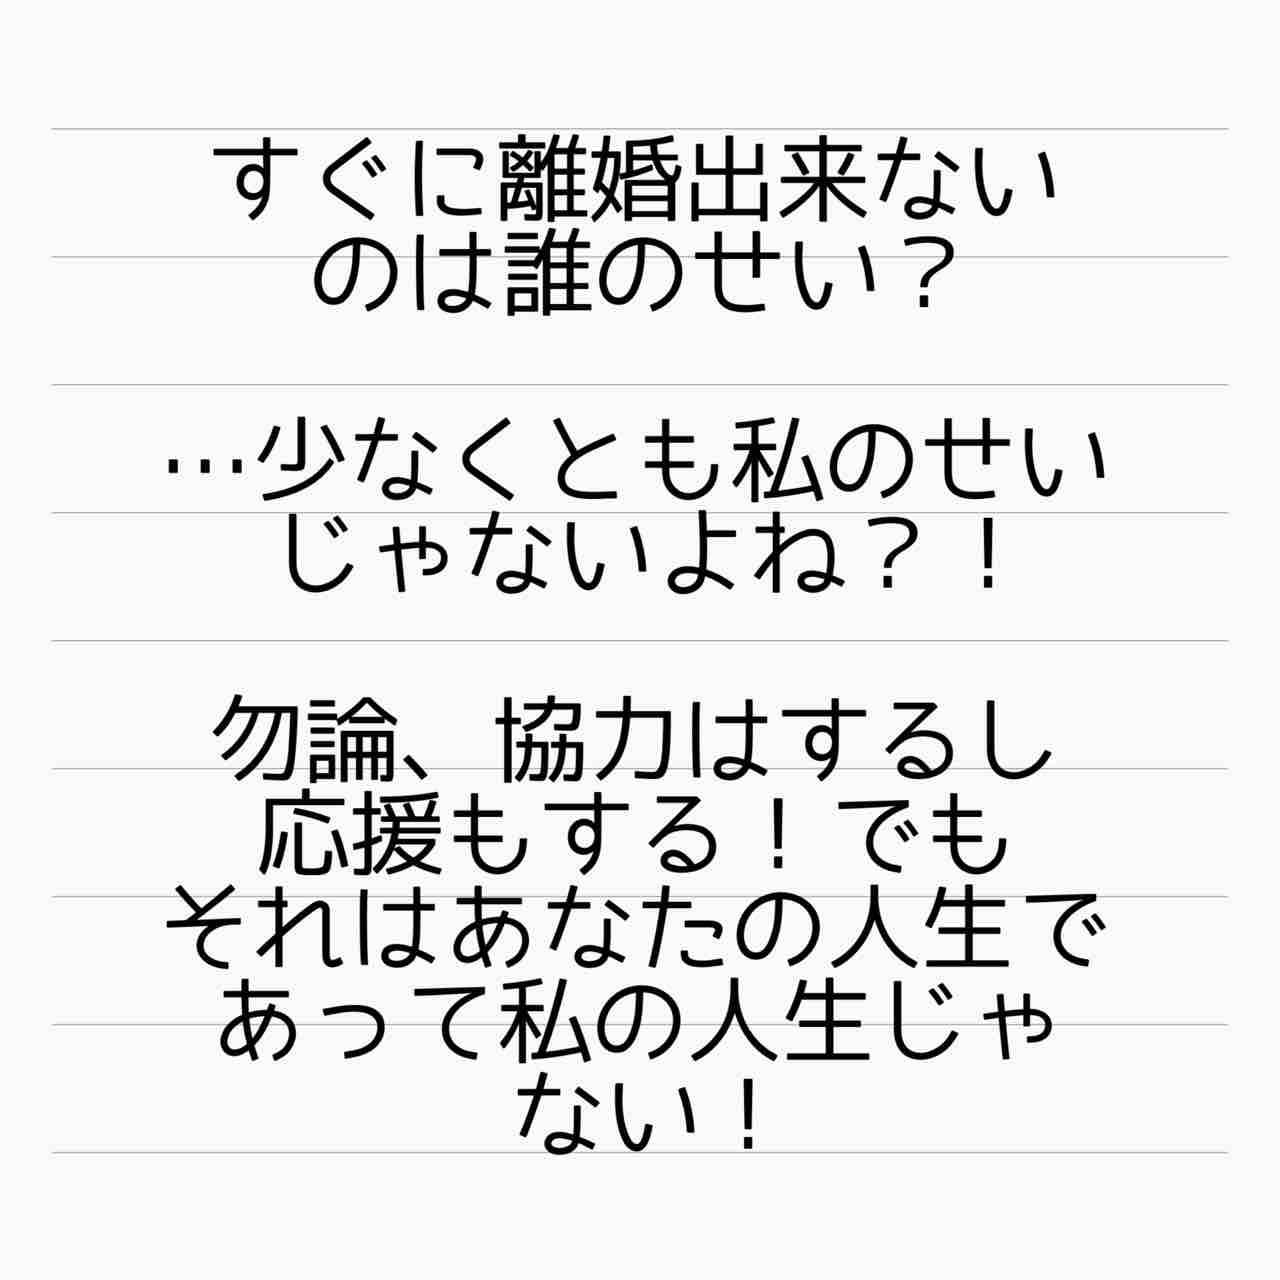 すぐに離婚出来ない
のは誰のせい？
…少なくとも私のせい
じゃないよね？！
勿論、協力はするし
応援もする！でも
それはあなたの人生で
あって私の人生じゃ
ない！